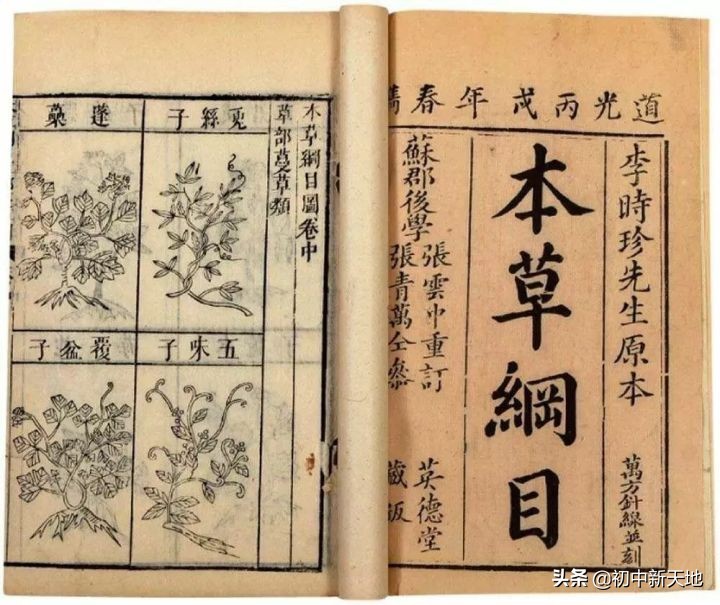 道光丙戌年春鐫
李時珍先生原本
萬方針線並刻
本草綱目
蘇郡後學
張雲中重訂
張青萬仝參
英德堂
藏板
本草綱目圖卷中
草部蔓草類
兔絲子
蓬蘽
五味子
覆盆子
头条 @初中新天地